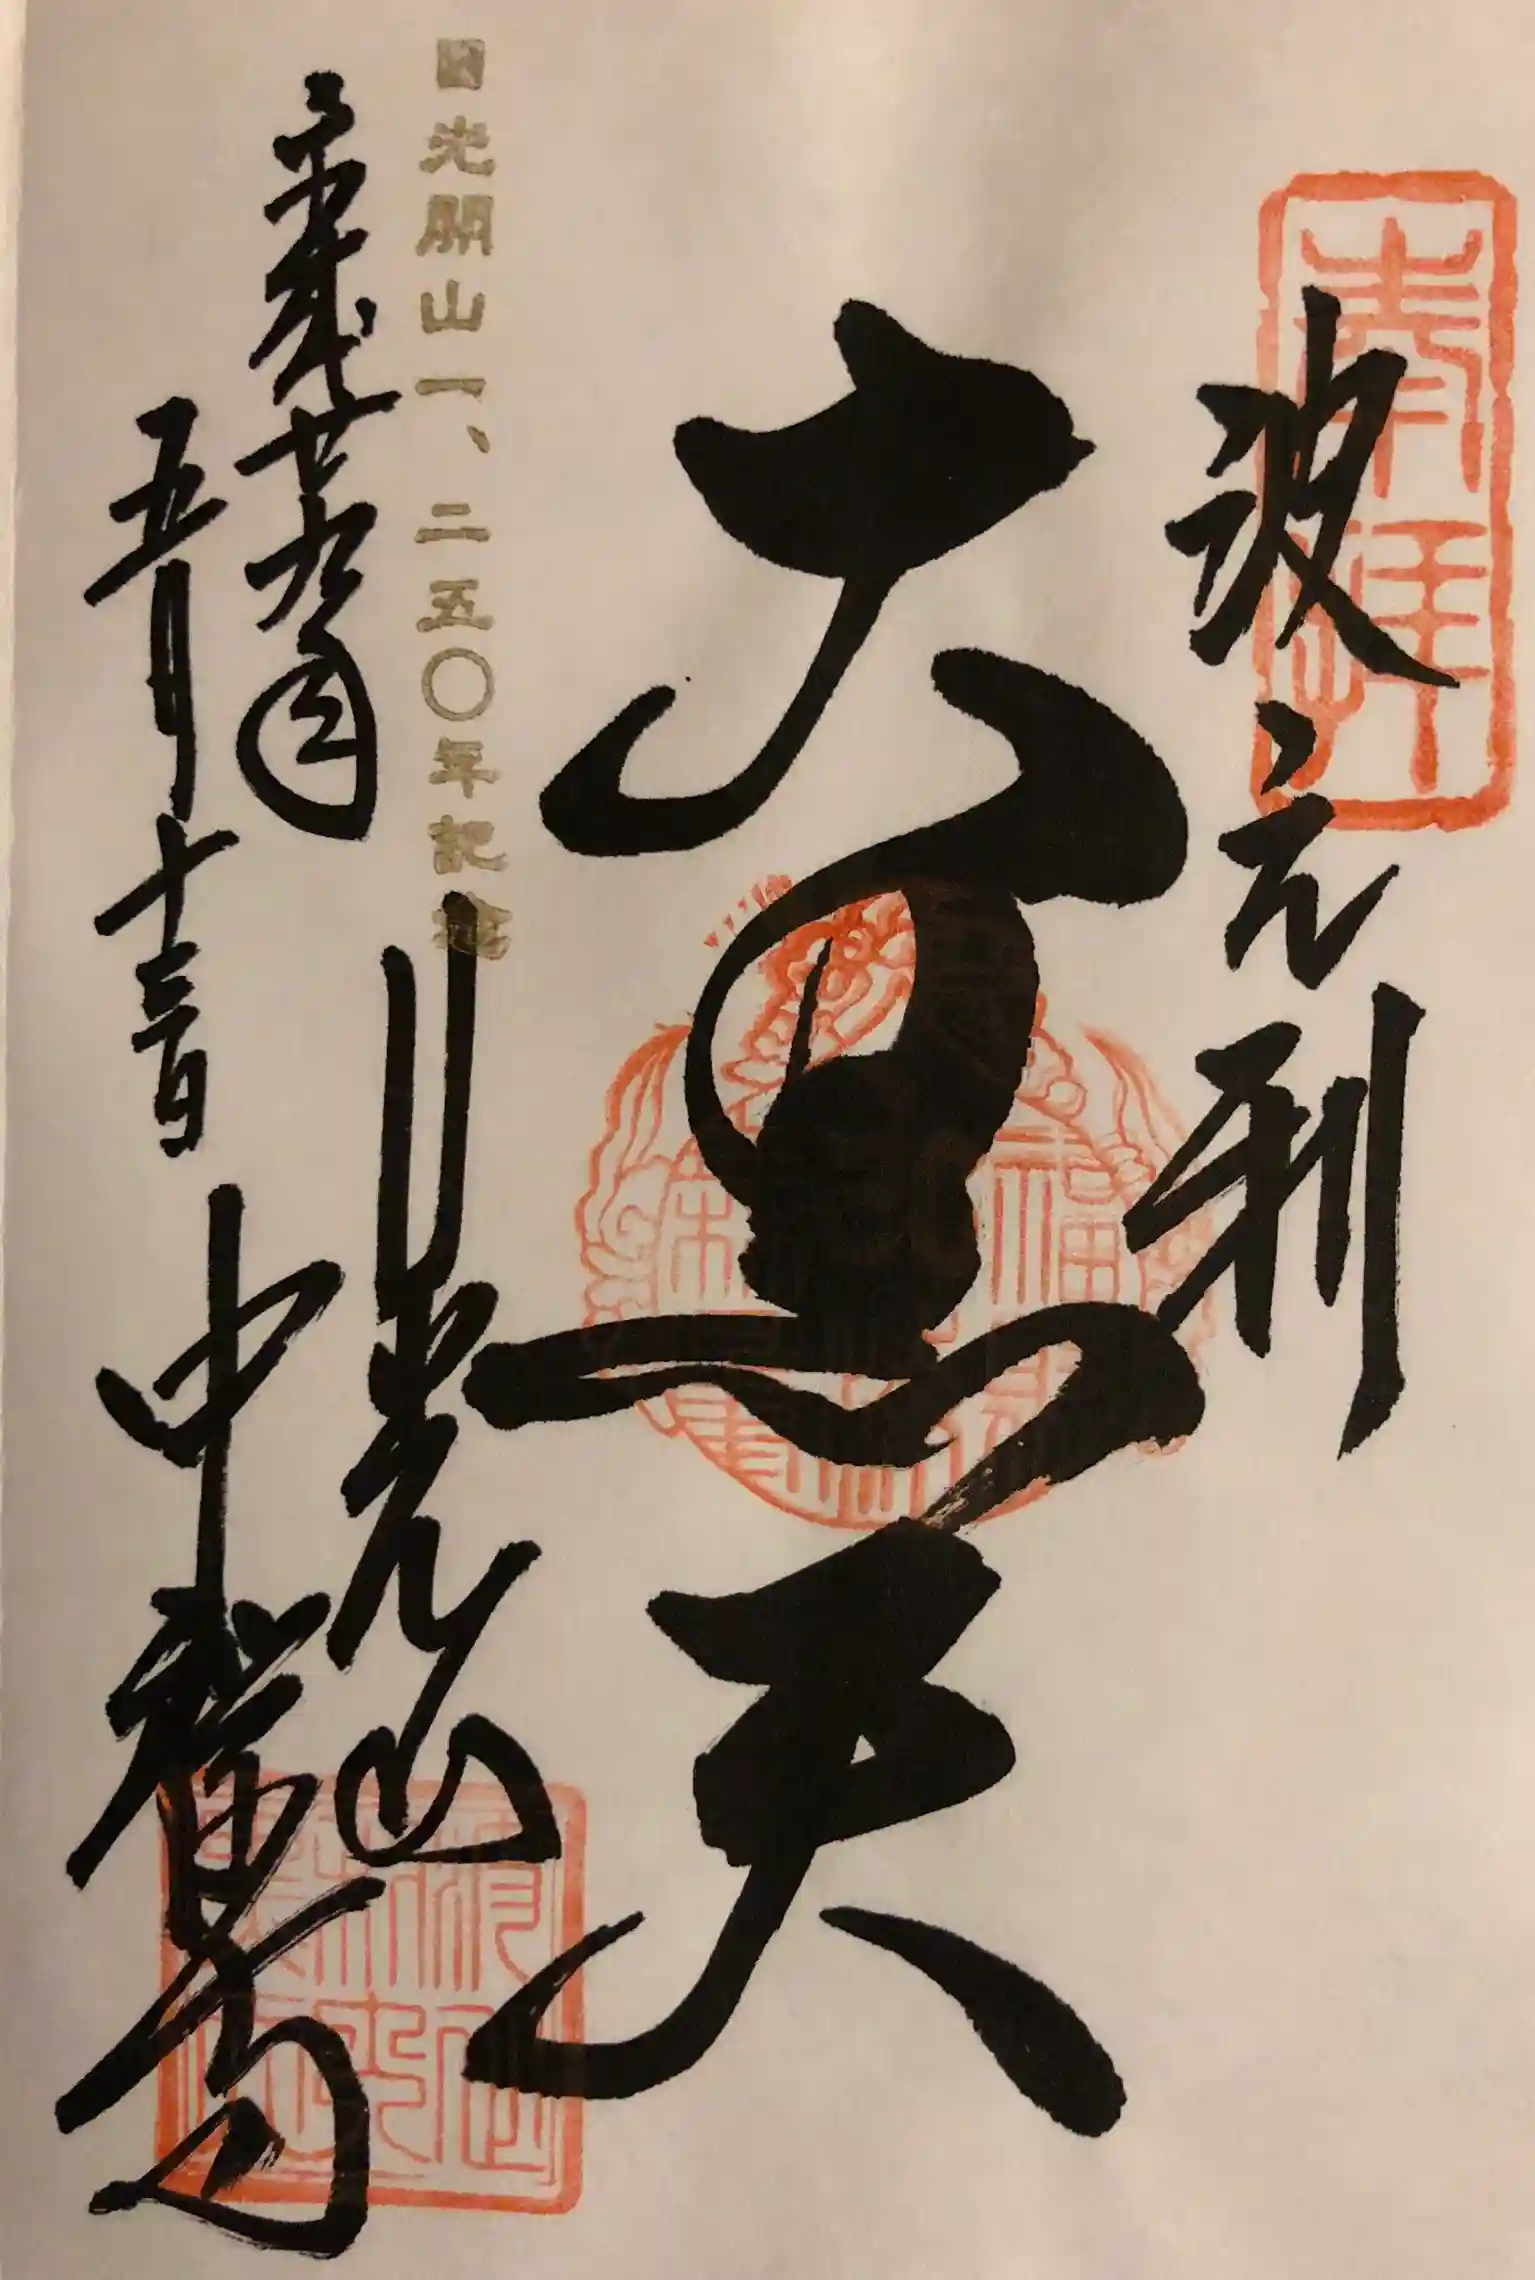 奉拝
波之利
大黒天
日光開山一、二五〇年記念
平成廿九年
五月十三日
日光山
中禅寺